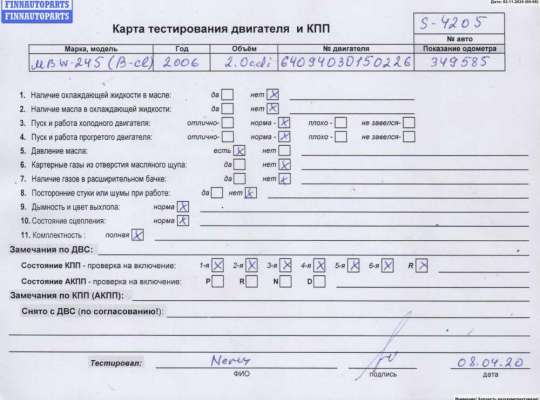 FINNAUTOPARTS
FINNAUTOPARTS
Карта тестирования двигателя и КПП
S-4205
№ авто
Марка, модель Год Объём № двигателя Показание одометра
MB W-245 (B-cl) 2006 2.0cdi 64094030150226 349585
1. Наличие охлаждающей жидкости в масле: да нет X
2. Наличие масла в охлаждающей жидкости: да нет X
3. Пуск и работа холодного двигателя: отлично- норма - X плохо - не завелся-
4. Пуск и работа прогретого двигателя: отлично- норма - X плохо - не завелся-
5. Давление масла: есть X нет
6. Картерные газы из отверстия масляного щупа: да нет X
7. Наличие газов в расширительном бачке: да нет X
8. Посторонние стуки или шумы при работе: да нет X
9. Дымность и цвет выхлопа: норма X
10. Состояние сцепления: норма X
11. Комплектность : полная X
Замечания по ДВС:
Состояние КПП - проверка на включение: 1-я X 2-я X 3-я X 4-я X 5-я X 6-я X R X
Состояние АКПП - проверка на включение: P R N D
Замечания по КПП (АКПП):
Снято с ДВС (по согласованию!):
Тестировал: 08.04.20
ФИО подпись дата